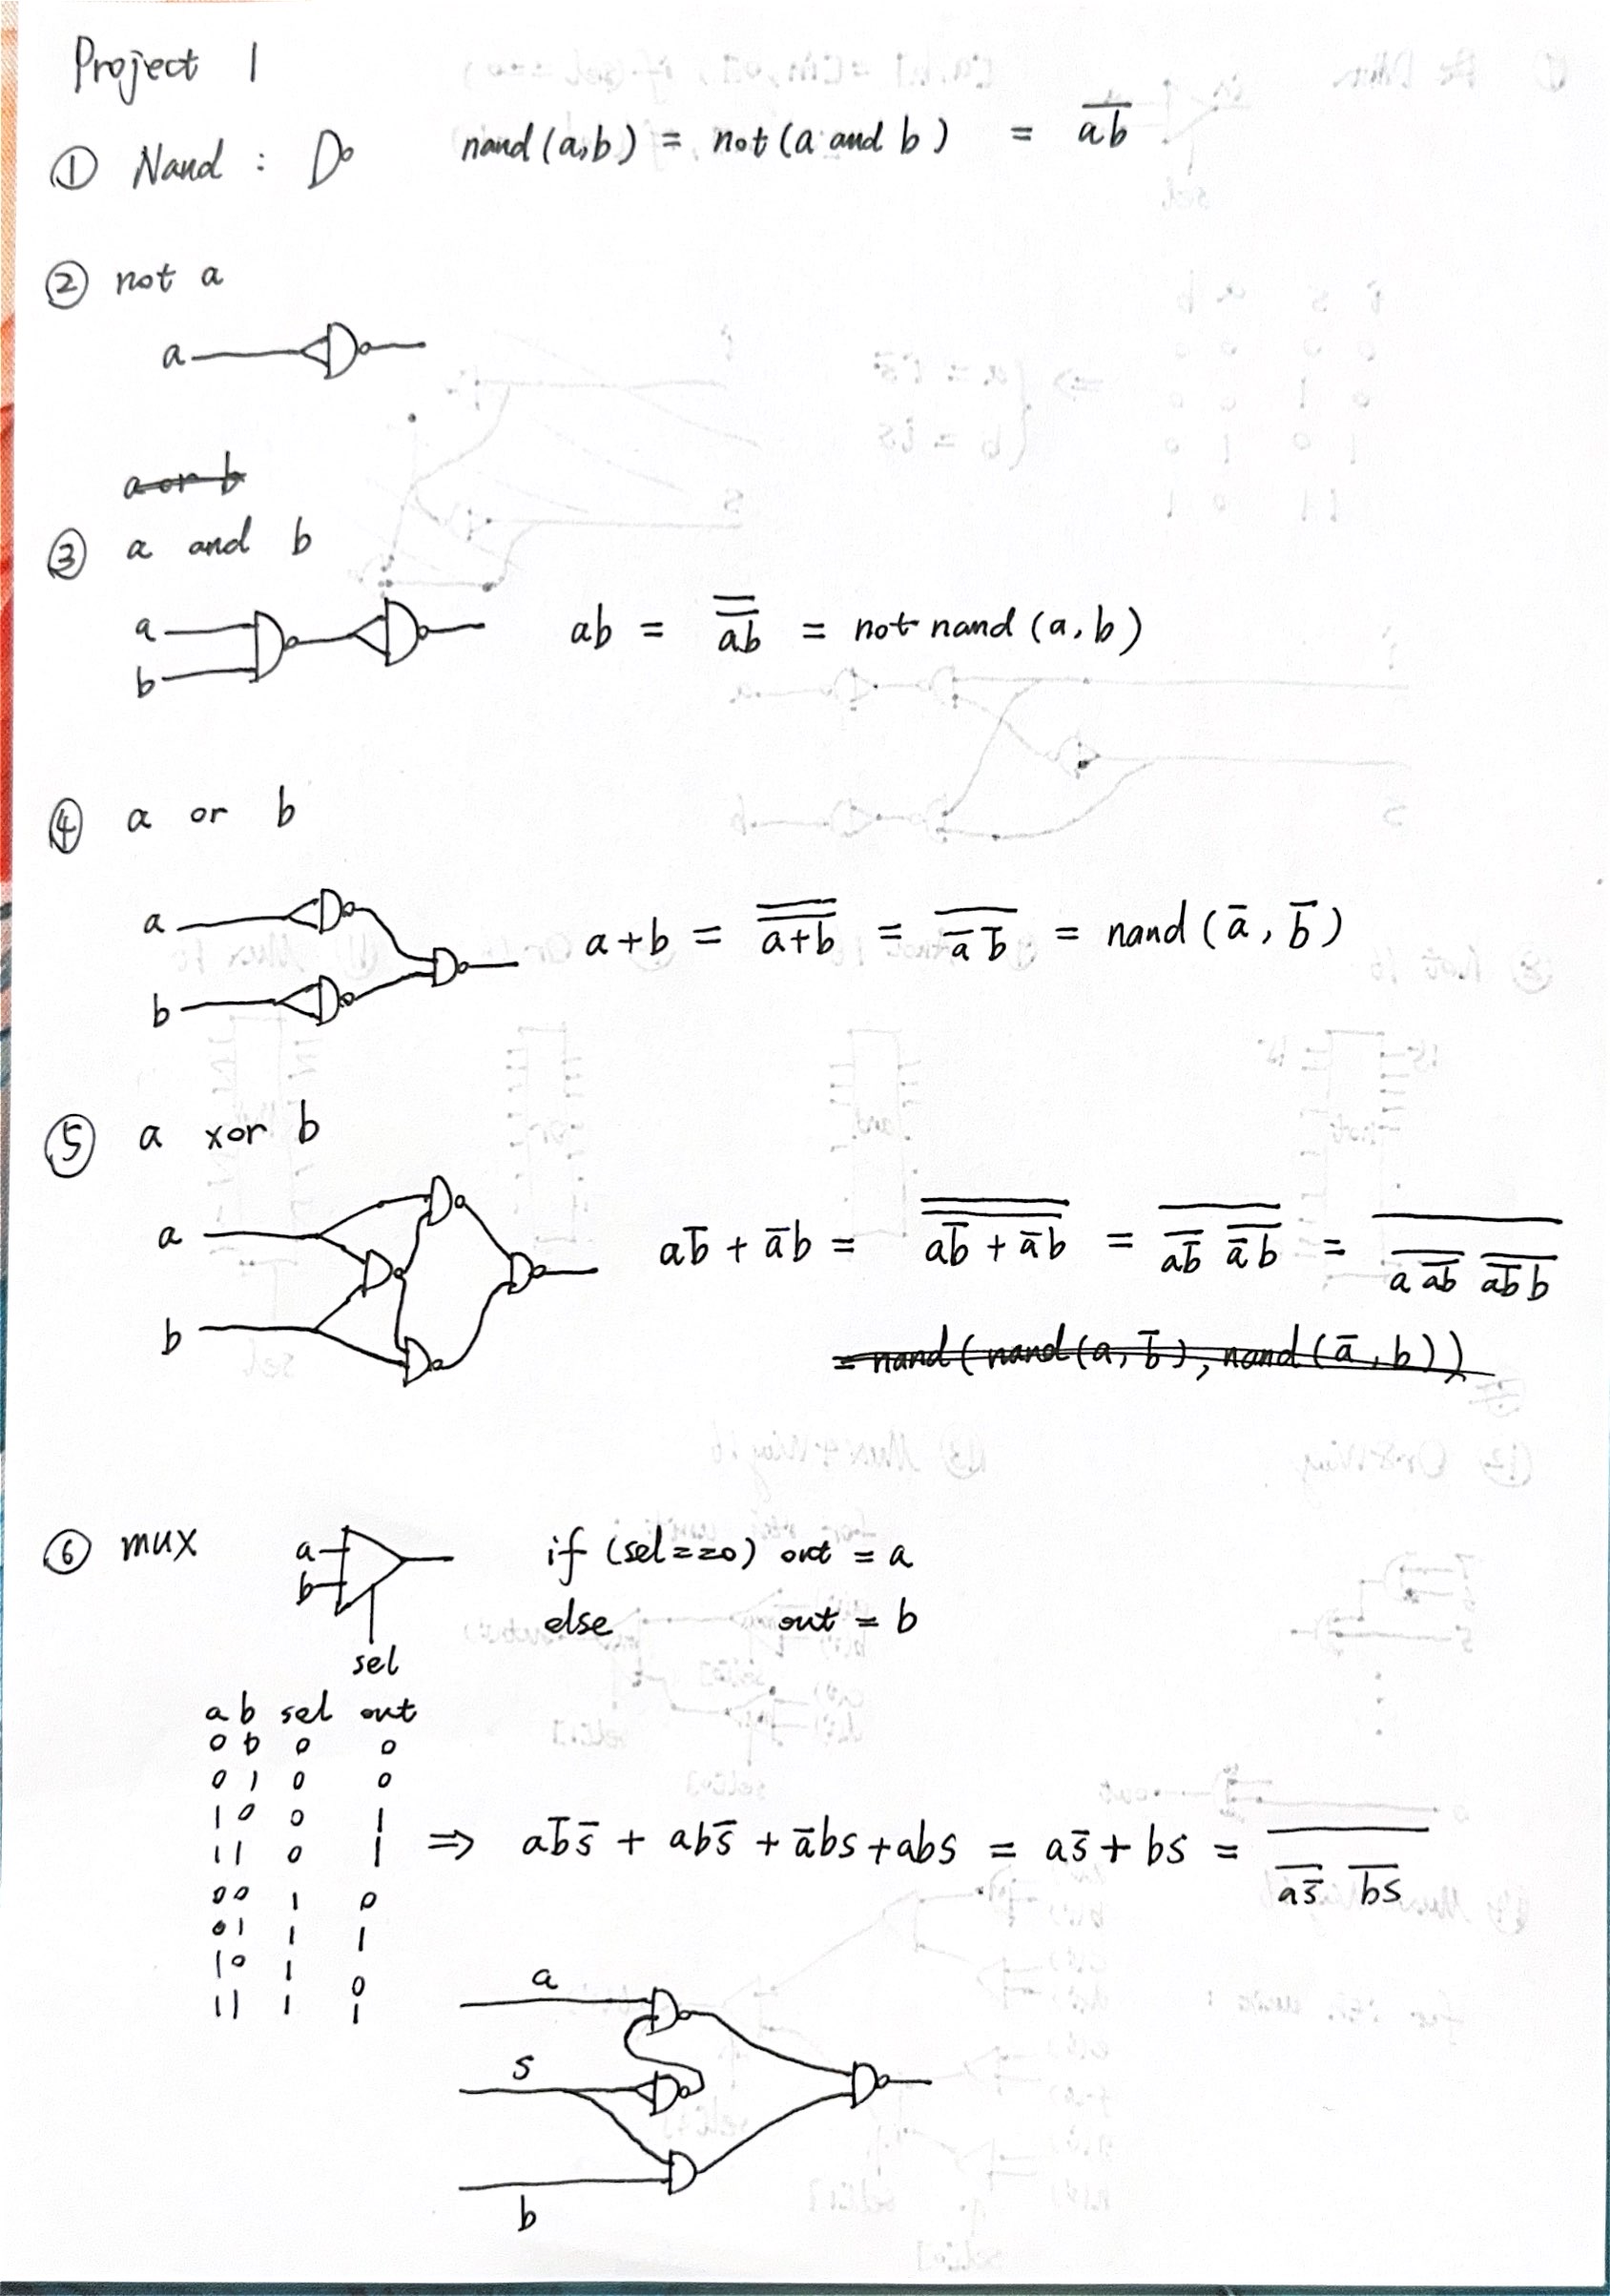 Project 1
① Nand : nand(a,b) = not(a and b) = \overline{ab}
② not a
a
a or b
③ a and b
a
b
ab = \overline{\overline{ab}} = not nand (a, b)
④ a or b
a
b
a+b = \overline{\overline{a+b}} = \overline{\bar{a} \bar{b}} = nand (\bar{a}, \bar{b})
⑤ a xor b
a
b
a\bar{b} + \bar{a}b = \overline{\overline{a\bar{b} + \bar{a}b}} = \overline{\overline{a\bar{b}} \overline{\bar{a}b}} = \overline{\overline{a \overline{ab}} \overline{\overline{ab} b}}
= nand( nand(a, \bar{b}), nand(\bar{a}, b))
⑥ mux
a
b
sel
if (sel==0) out = a
else out = b
a b sel out
0 0 0 0
0 1 0 0
1 0 0 1
1 1 0 1
0 0 1 0
0 1 1 1
1 0 1 0
1 1 1 1
⇒ a\bar{b}\bar{s} + ab\bar{s} + \bar{a}bs + abs = a\bar{s} + bs = \overline{\overline{a\bar{s}} \overline{bs}}
a
s
b